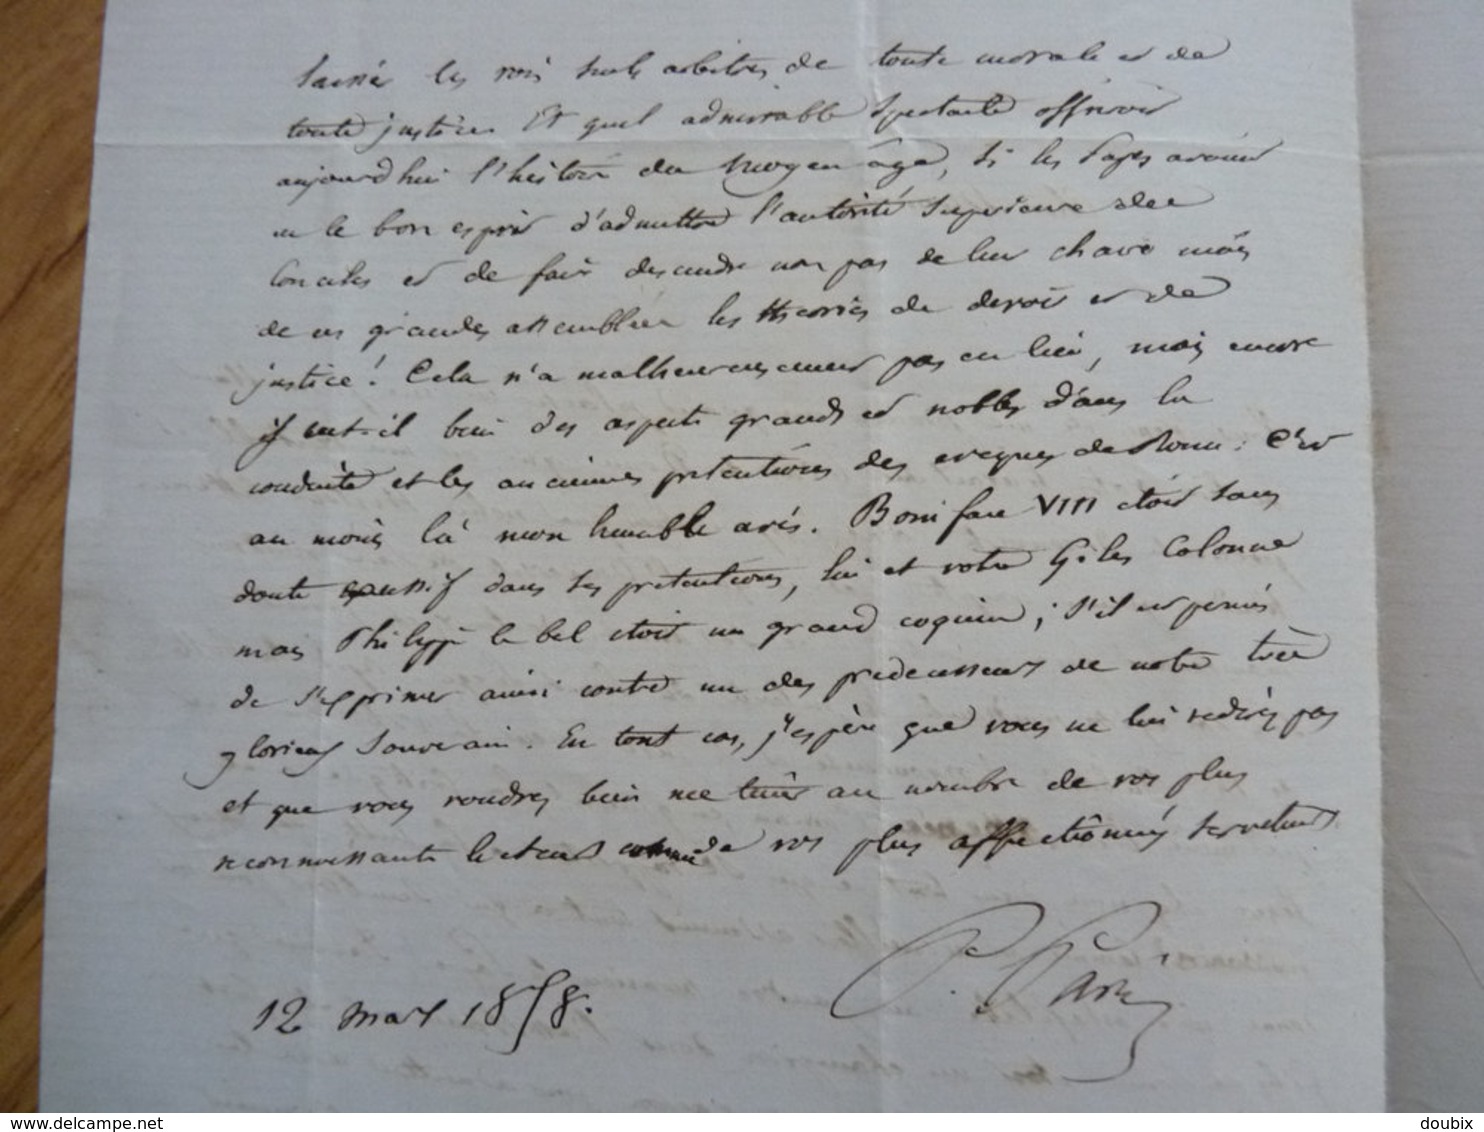 laissé les rois seuls arbitres de toute morale et de
toute justice. Et quel admirable spectacle offriroit
aujourd'hui l'histoire du moyen âge, si les Papes avoient
eu le bon esprit d'admettre l'autorité superieure des
Conciles et de faire descendre non pas de leur chaire mais
de ces grandes assemblées les théories de devoir et de
justice! Cela n'a malheureusement pas eu lieu, mais encore
y eut-il bien des aspects grands et nobles dans la
conduite et les anciennes prétentions des eveques de Rome. C'est
au moins là mon humble avis. Boniface VIII etoit sans
doute excessif dans ses pretentions, lui et votre Giles Colonne
mais Philippe le bel etoit un grand coquin; s'il est permis
de s'exprimer ainsi contre un des predecesseurs de notre très
glorieux Souverain. En tout cas, j'espère que vous ne lui redirez pas
et que vous voudrez bien me tenir au nombre de vos plus
reconnoissants lecteurs comme de vos plus affectionnés serviteurs
P. Paris
12 mars 1858.
delcampe.net
doubix